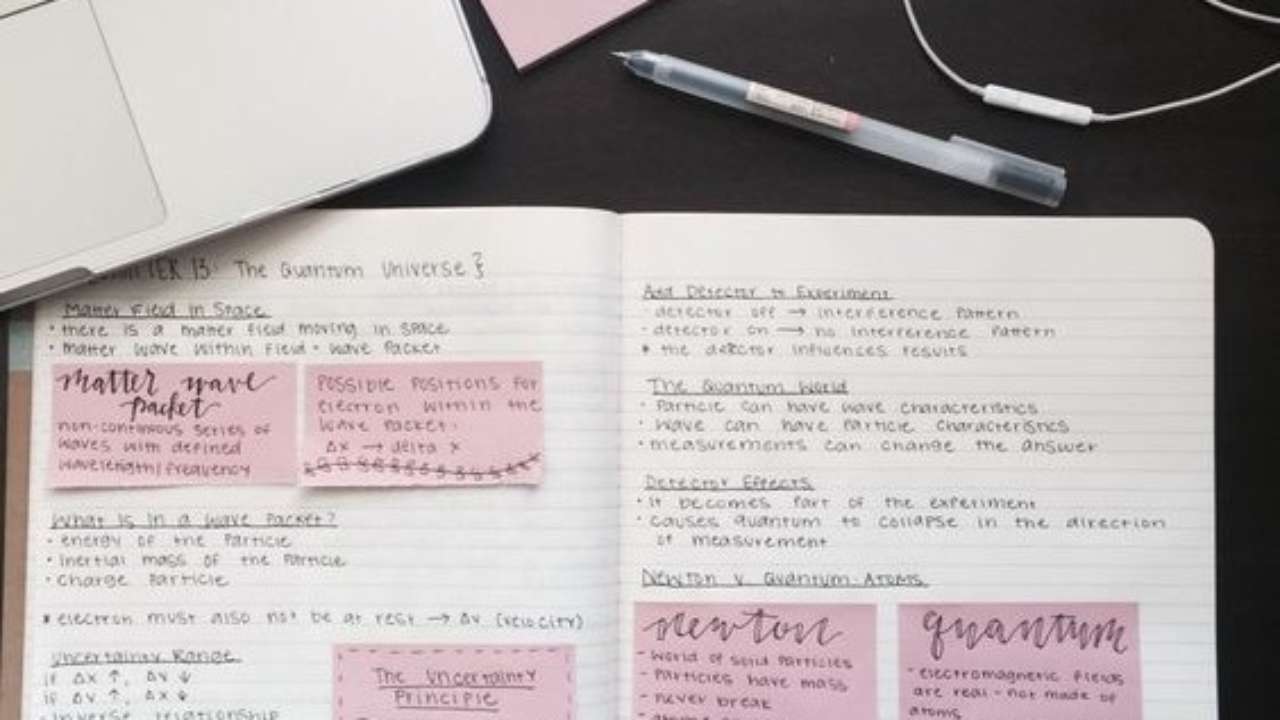 13: The Quantum Universe
Matter Field in Space
• there is a matter field moving in space
• matter wave within field = wave packet
matter wave
packet
non-continuous series of
waves with defined
wavelength/frequency
Possible positions for
electron within the
wave packet:
Δx → delta x
What is in a wave packet?
• energy of the particle
• inertial mass of the particle
• charge particle
* electron must also not be at rest → Δv (velocity)
Uncertainty Range
if Δx ↑, Δv ↓
if Δv ↑, Δx ↓
- inverse relationship
The Uncertainty
Principle
Add Detector to Experiment
- detector off → interference pattern
- detector on → no interference pattern
* the detector influences results
The Quantum World
• Particle can have wave characteristics
• wave can have particle characteristics
• measurements can change the answer
Detector Effects
• it becomes part of the experiment
• causes quantum to collapse in the direction
of measurement
Newton v. Quantum Atoms
newton
- world of solid particles
- particles have mass
- never break
quantum
- electromagnetic fields
are real - not made of
atoms